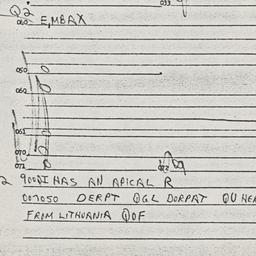 033
Q2
040- E,MBAX
050
060
061
070
071
2 900DI HAS AN APICAL R
007050 DERPT QGL DORPAT QU HE
FROM LITHUANIA QOF